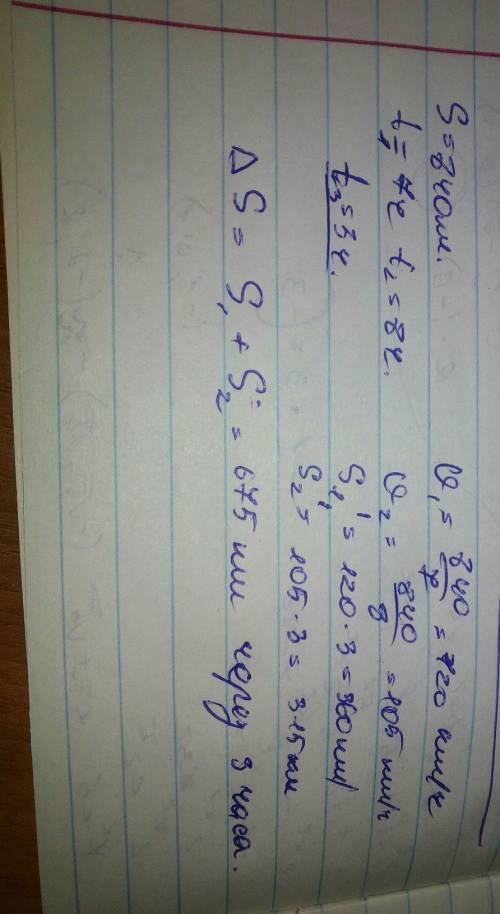 S = 840 км.
t₁ = 7ч t₂ = 8ч.
t₃ = 3ч.
υ₁ = 840/7 = 120 км/ч
υ₂ = 840/8 = 105 км/ч
S₁' = 120 · 3 = 360 км
S₂ = 105 · 3 = 315 км
Δ S = S₁ + S₂ = 675 км через 3 часа.